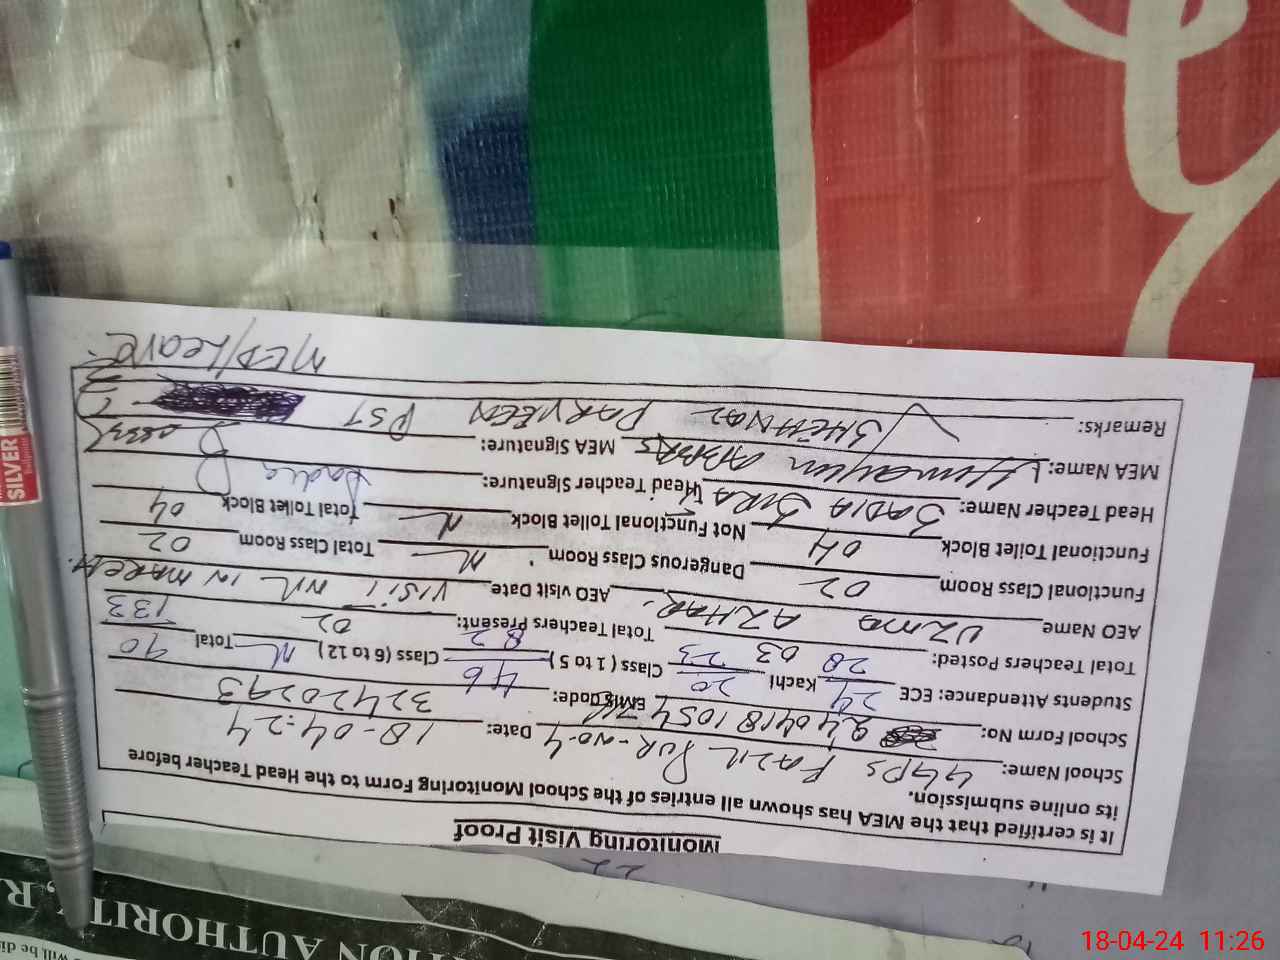 Monitoring Visit Proof
It is certified that the MEA has shown all entries of the School Monitoring Form to the Head Teacher before
its online submission.
School Name: GGPS FAZIL PUR-NO-4 Date: 18-04-24
School Form No: 2404181054 EMIS Code: 32420293
Students Attendance: ECE: 24/28 Kachi 20/23 Class ( 1 to 5 ) 46/82 Class (6 to 12) N Total 90/133
Total Teachers Posted: 03 Total Teachers Present: 02
AEO Name UZMA AZHAR AEO visit Date VISIT NIL IN MARCH
Functional Class Room 02 Dangerous Class Room N Total Class Room 02
Functional Toilet Block 04 Not Functional Toilet Block N Total Toilet Block 04
Head Teacher Name: SADIA Head Teacher Signature: Sadia
MEA Name: Humayun ABBAS MEA Signature:
Remarks: SHEHNAZ PARVEEN PST
MED/Leave
SILVER
ION AUTHORITY, R
will be di
18-04-24 11:26